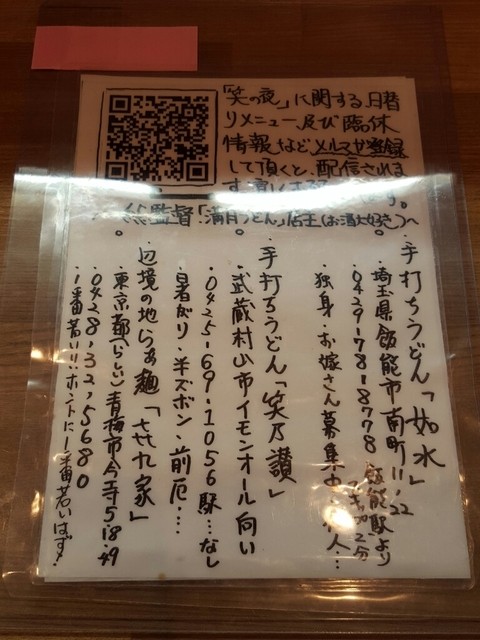 「笑の夜」に関する、日替
りメニュー、及び臨休
情報などメルマガ登録
して頂くと、配信されま
す。
総監督「満月うどん」店主(お酒大好き)〜
・手打ちうどん「如水」
・埼玉県飯能市南町11,22
・0429-78-8778 飯能駅より
2分
・独身・お嫁さん募集中
・手打ちうどん「笑乃讃」
・武蔵村山市イオンモール向い
・0425-69-1056 駅…なし
・暑がり・半ズボン・前厄…
・辺境の地らぁ麺「㐂九家」
・東京都(らしい)青梅市今寺5 18 49
・0428,32,5680
・1番若い!!ホントに1番若いはず!